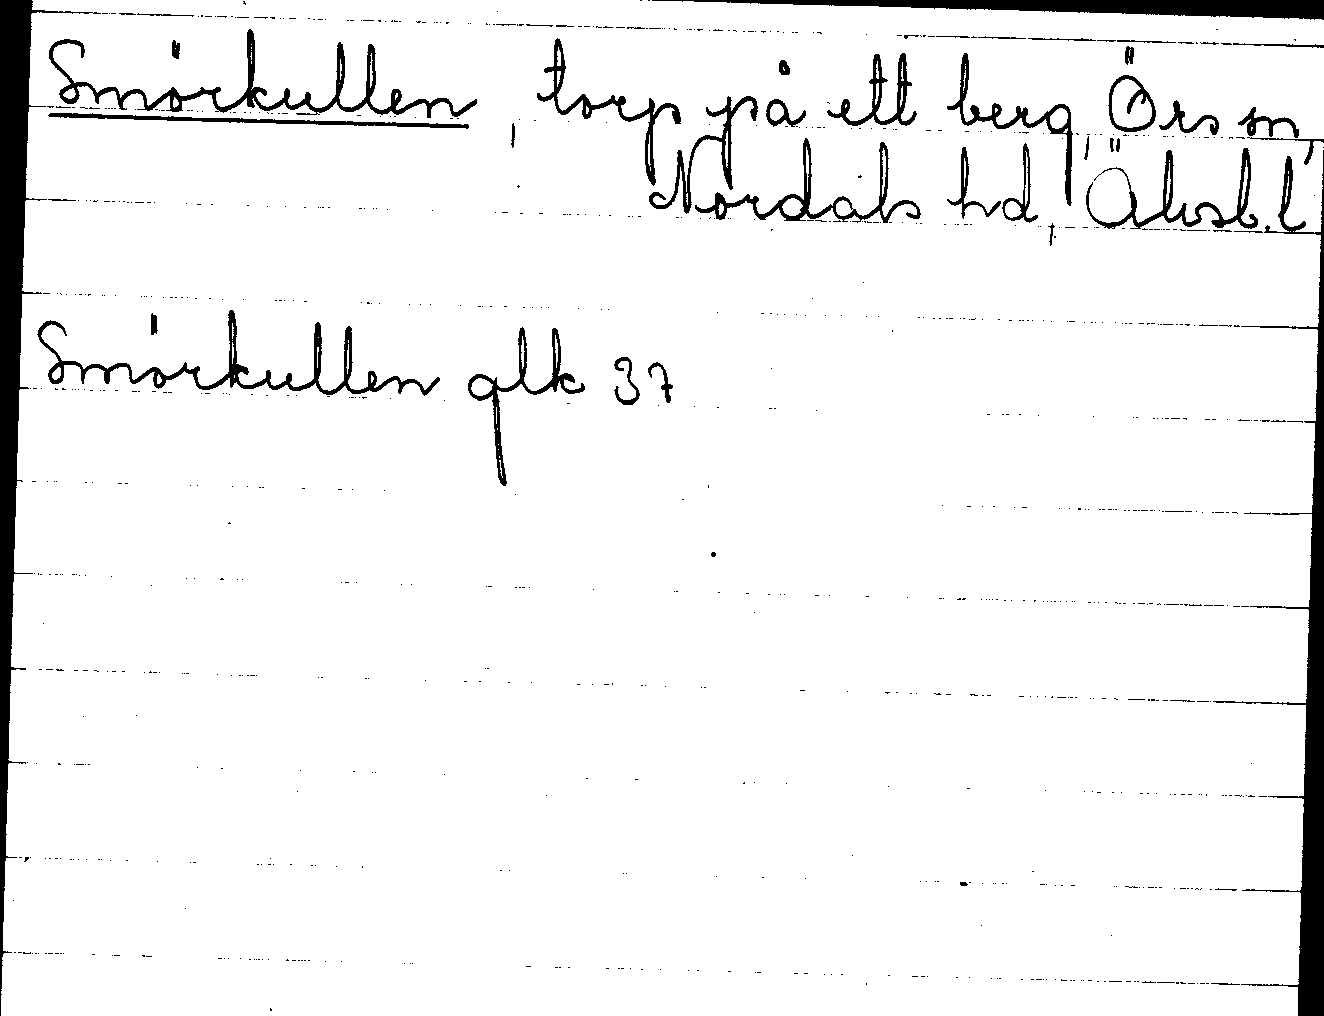 Smörkullen, torp på ett berg, Örs sn,
Nordals hd, Älvsb. l
Smörkullen glk 37